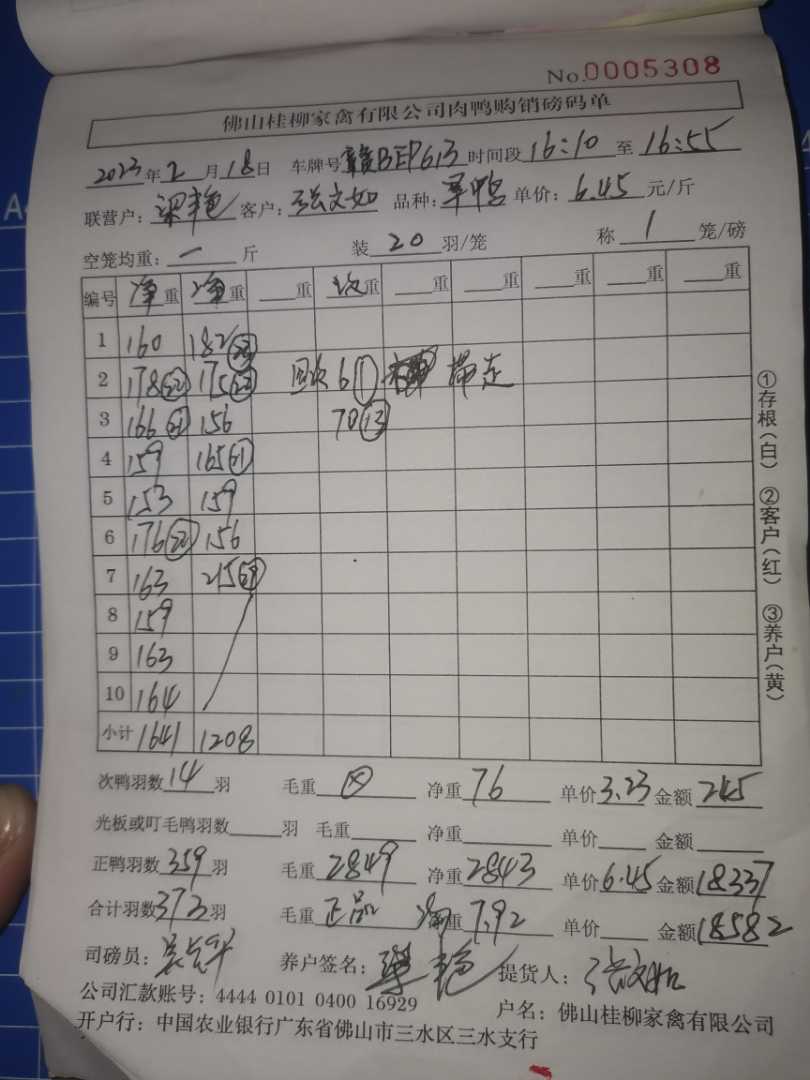 No.0005308
佛山桂柳家禽有限公司肉鸭购销磅码单
2023年2月18日 车牌号赣BEP613 时间段16:10至16:55
联营户:梁艳 客户:张文如 品种:单价:6.45元/斤
空笼均重:一斤 装20羽/笼 称1笼/磅
编号 净重 净重 重 次重 重 重 重 重 重
1 160 182㉓
2 178㉒ 175㉒ 回次 6① 带走
3 166㉑ 156 70⑬
4 159 165㉑
5 153 159
6 176㉒ 156
7 163 215
8 159
9 163
10 164
小计 1641 1208
次鸭羽数14羽 毛重 净重76 单价3.23 金额245
光板或叮毛鸭羽数 羽 毛重 净重 单价 金额
正鸭羽数359羽 毛重2849 净重2843 单价6.45 金额18337
合计羽数373羽 毛重正品 重7.92 单价 金额18582
司磅员: 养户签名:梁艳 提货人:张文如
公司汇款账号:4444 0101 0400 16929 户名:佛山桂柳家禽有限公司
开户行:中国农业银行广东省佛山市三水区三水支行
①存根(白) ②客户(红) ③养户(黄)